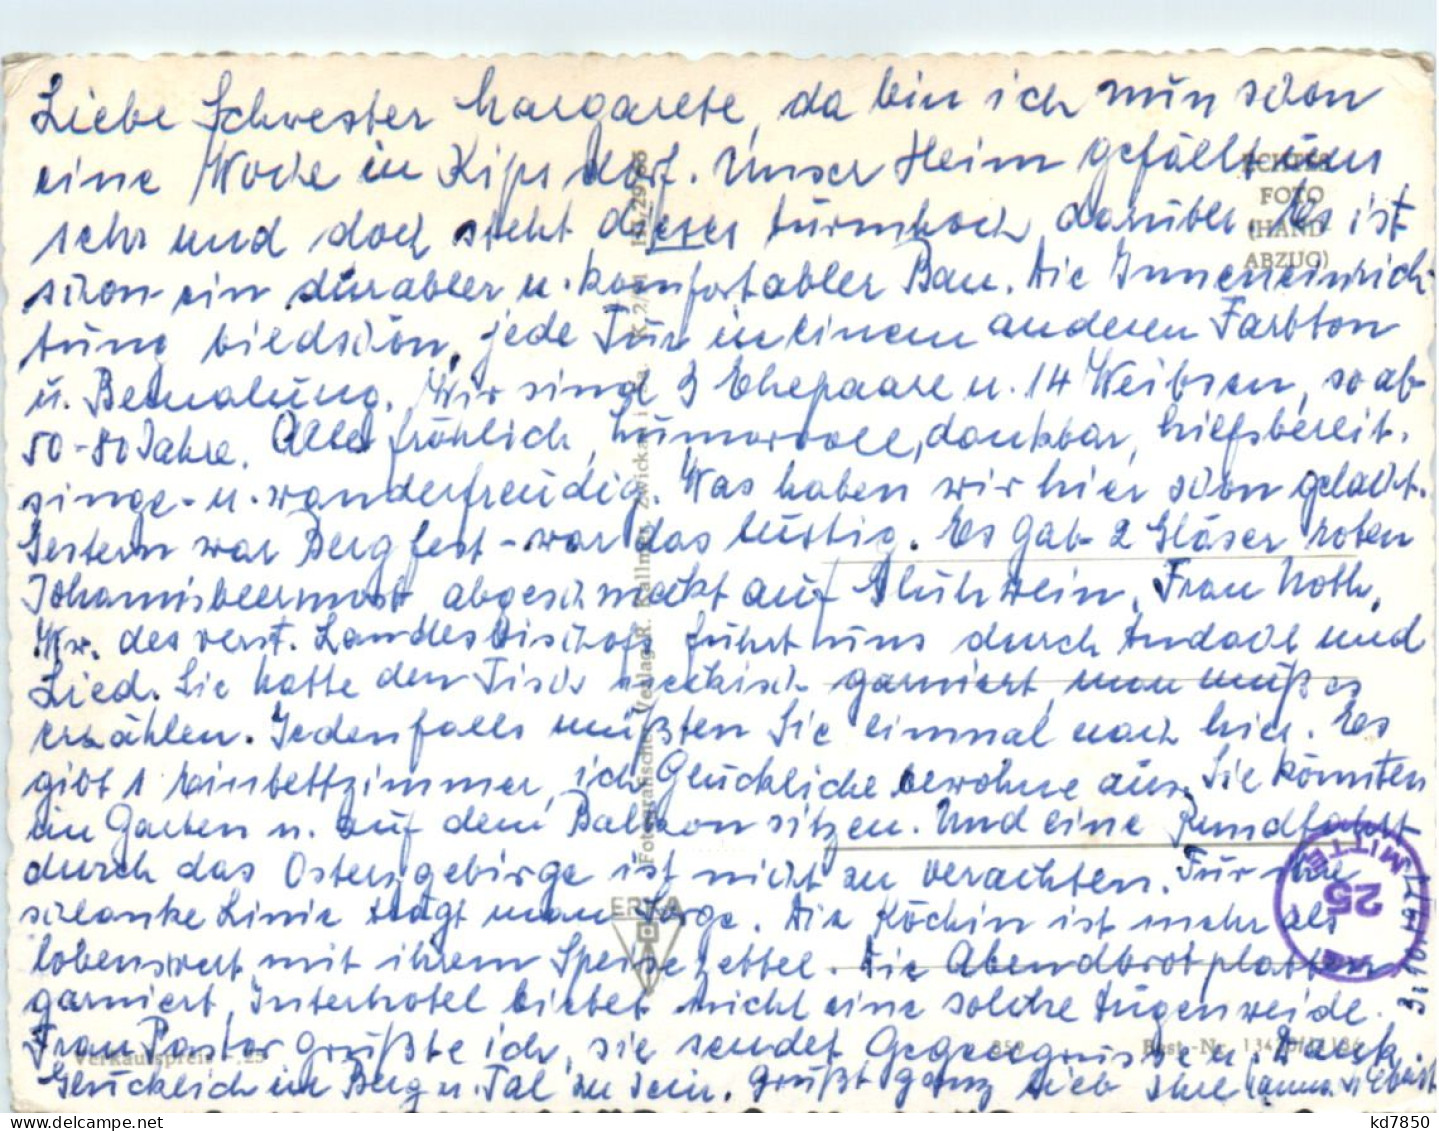 Liebe Schwester Margarete, da bin ich nun schon
eine Woche in Kipsdorf. Unser Heim gefällt uns
sehr und doch steht dieses turmhoch darüber. Es ist
schon ein durabler u. komfortabler Bau. Die Inneneinrich-
tung bildschön, jede Tür in einem anderen Farbton
u. Bemalung. Wir sind 3 Ehepaare u. 14 Weibsen, so ab
50-80 Jahre. Alle fröhlich, humorvoll, dankbar, hilfsbereit,
singe- u. wanderfreudig. Was haben wir hier schon gelacht.
Gestern war Bergfest - war das lustig. Es gab 2 Gläser roten
Johannisbeermost, abgeschmeckt auf Glühwein. Frau Noth,
Ww. des verst. Landesbischofs führt uns durch Andacht und
Lied. Sie hatte den Tisch neckisch garniert, man muß es
erzählen. Jedenfalls müßten Sie einmal nach hier. Es
gibt 1 Einbettzimmer, ich Glückliche bewohne aus. Sie könnten
im Garten u. auf dem Balkon sitzen. Und eine Rundfahrt
durch das Osterzgebirge ist nicht zu verachten. Für die
schlanke Linie trägt man Sorge. Die Köchin ist mehr als
lobenswert mit ihrem Speisezettel. Die Abendbrotplatten
garniert, Interhotel bietet nicht eine solche Augenweide.
Frau Pastor grüßte ich, sie sendet Gegengrüße u. Dank.
Glücklich in Berg u. Tal zu sein. Grüßt ganz lieb Ihre
ECHTES
FOTO
(HAND-
ABZUG)
Fotografischer Verlag R. Kallmer, Zwickau i. Sa.
ERKA
MITTE
25
Verkaufspreis -.25
859
Best.-Nr.
kd7850